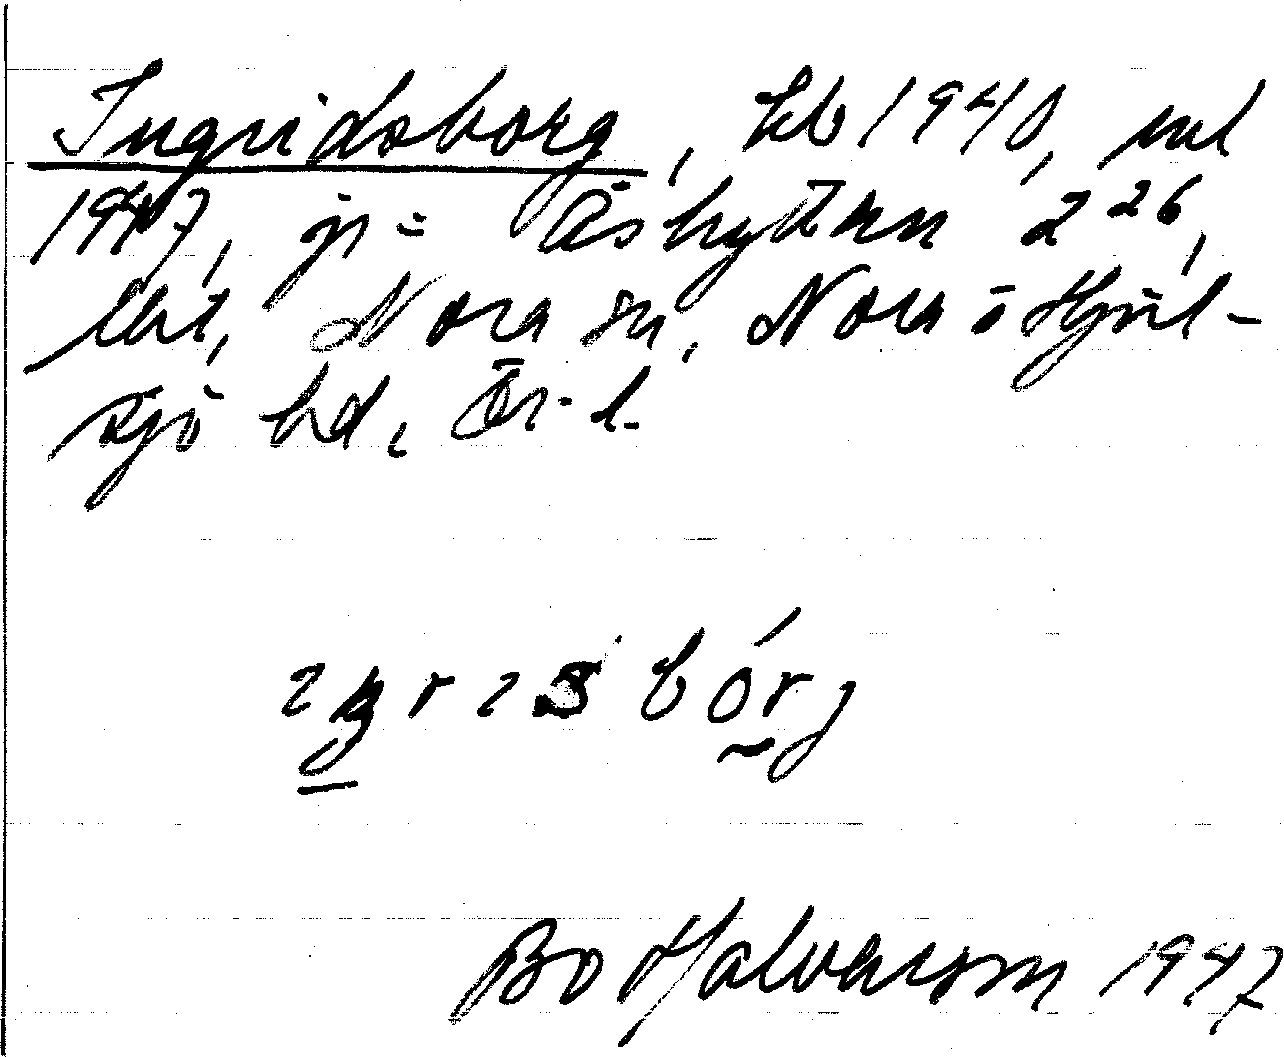 Ingridsborg, kb 1940, ml
1947, jr = Åshyttan 2²⁶,
lht, Nora sn, Nora o Hjul-
sjö hd, Ör. l.
bórj
Bo Halvarson 1947